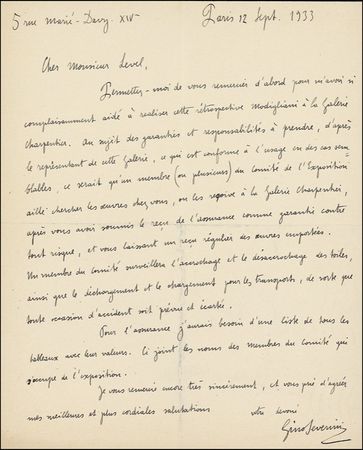 5 rue Marié-Davy. XIVe Paris 12 Sept. 1933
Cher Monsieur Level,
Permettez-moi de vous remercier d'abord pour m'avoir si
complaisamment aidé à realiser cette rétrospective Modigliani à la Galerie
Charpentier. Au sujet des garanties et responsabilités à prendre, d'après
le représentant de cette Galerie, ce qui est conforme à l'usage en des cas sem-
blables, ce serait qu'un membre (ou plusieurs) du Comité de l'Exposition
aille chercher les œuvres chez vous, ou les reçoive à la Galerie Charpentier,
après vous avoir soumis le reçu de l'assurance comme garantie contre
tout risque, et vous laissant un reçu régulier des œuvres emportées.
Un membre du Comité surveillera l'accrochage et le désaccrochage des toiles,
ainsi que le déchargement et le chargement pour les transports, de sorte que
toute occasion d'accident soit prévue et écartée.
Pour l'assurance j'aurais besoin d'une liste de tous les
tableaux avec leur valeurs. Ci joint les noms des membres du Comité qui
s'occupe de l'exposition.
Je vous remercie encore très sincèrement, et vous prie d'agréer
mes meilleures et plus cordiales salutations
votre dévoué
Gino Severini